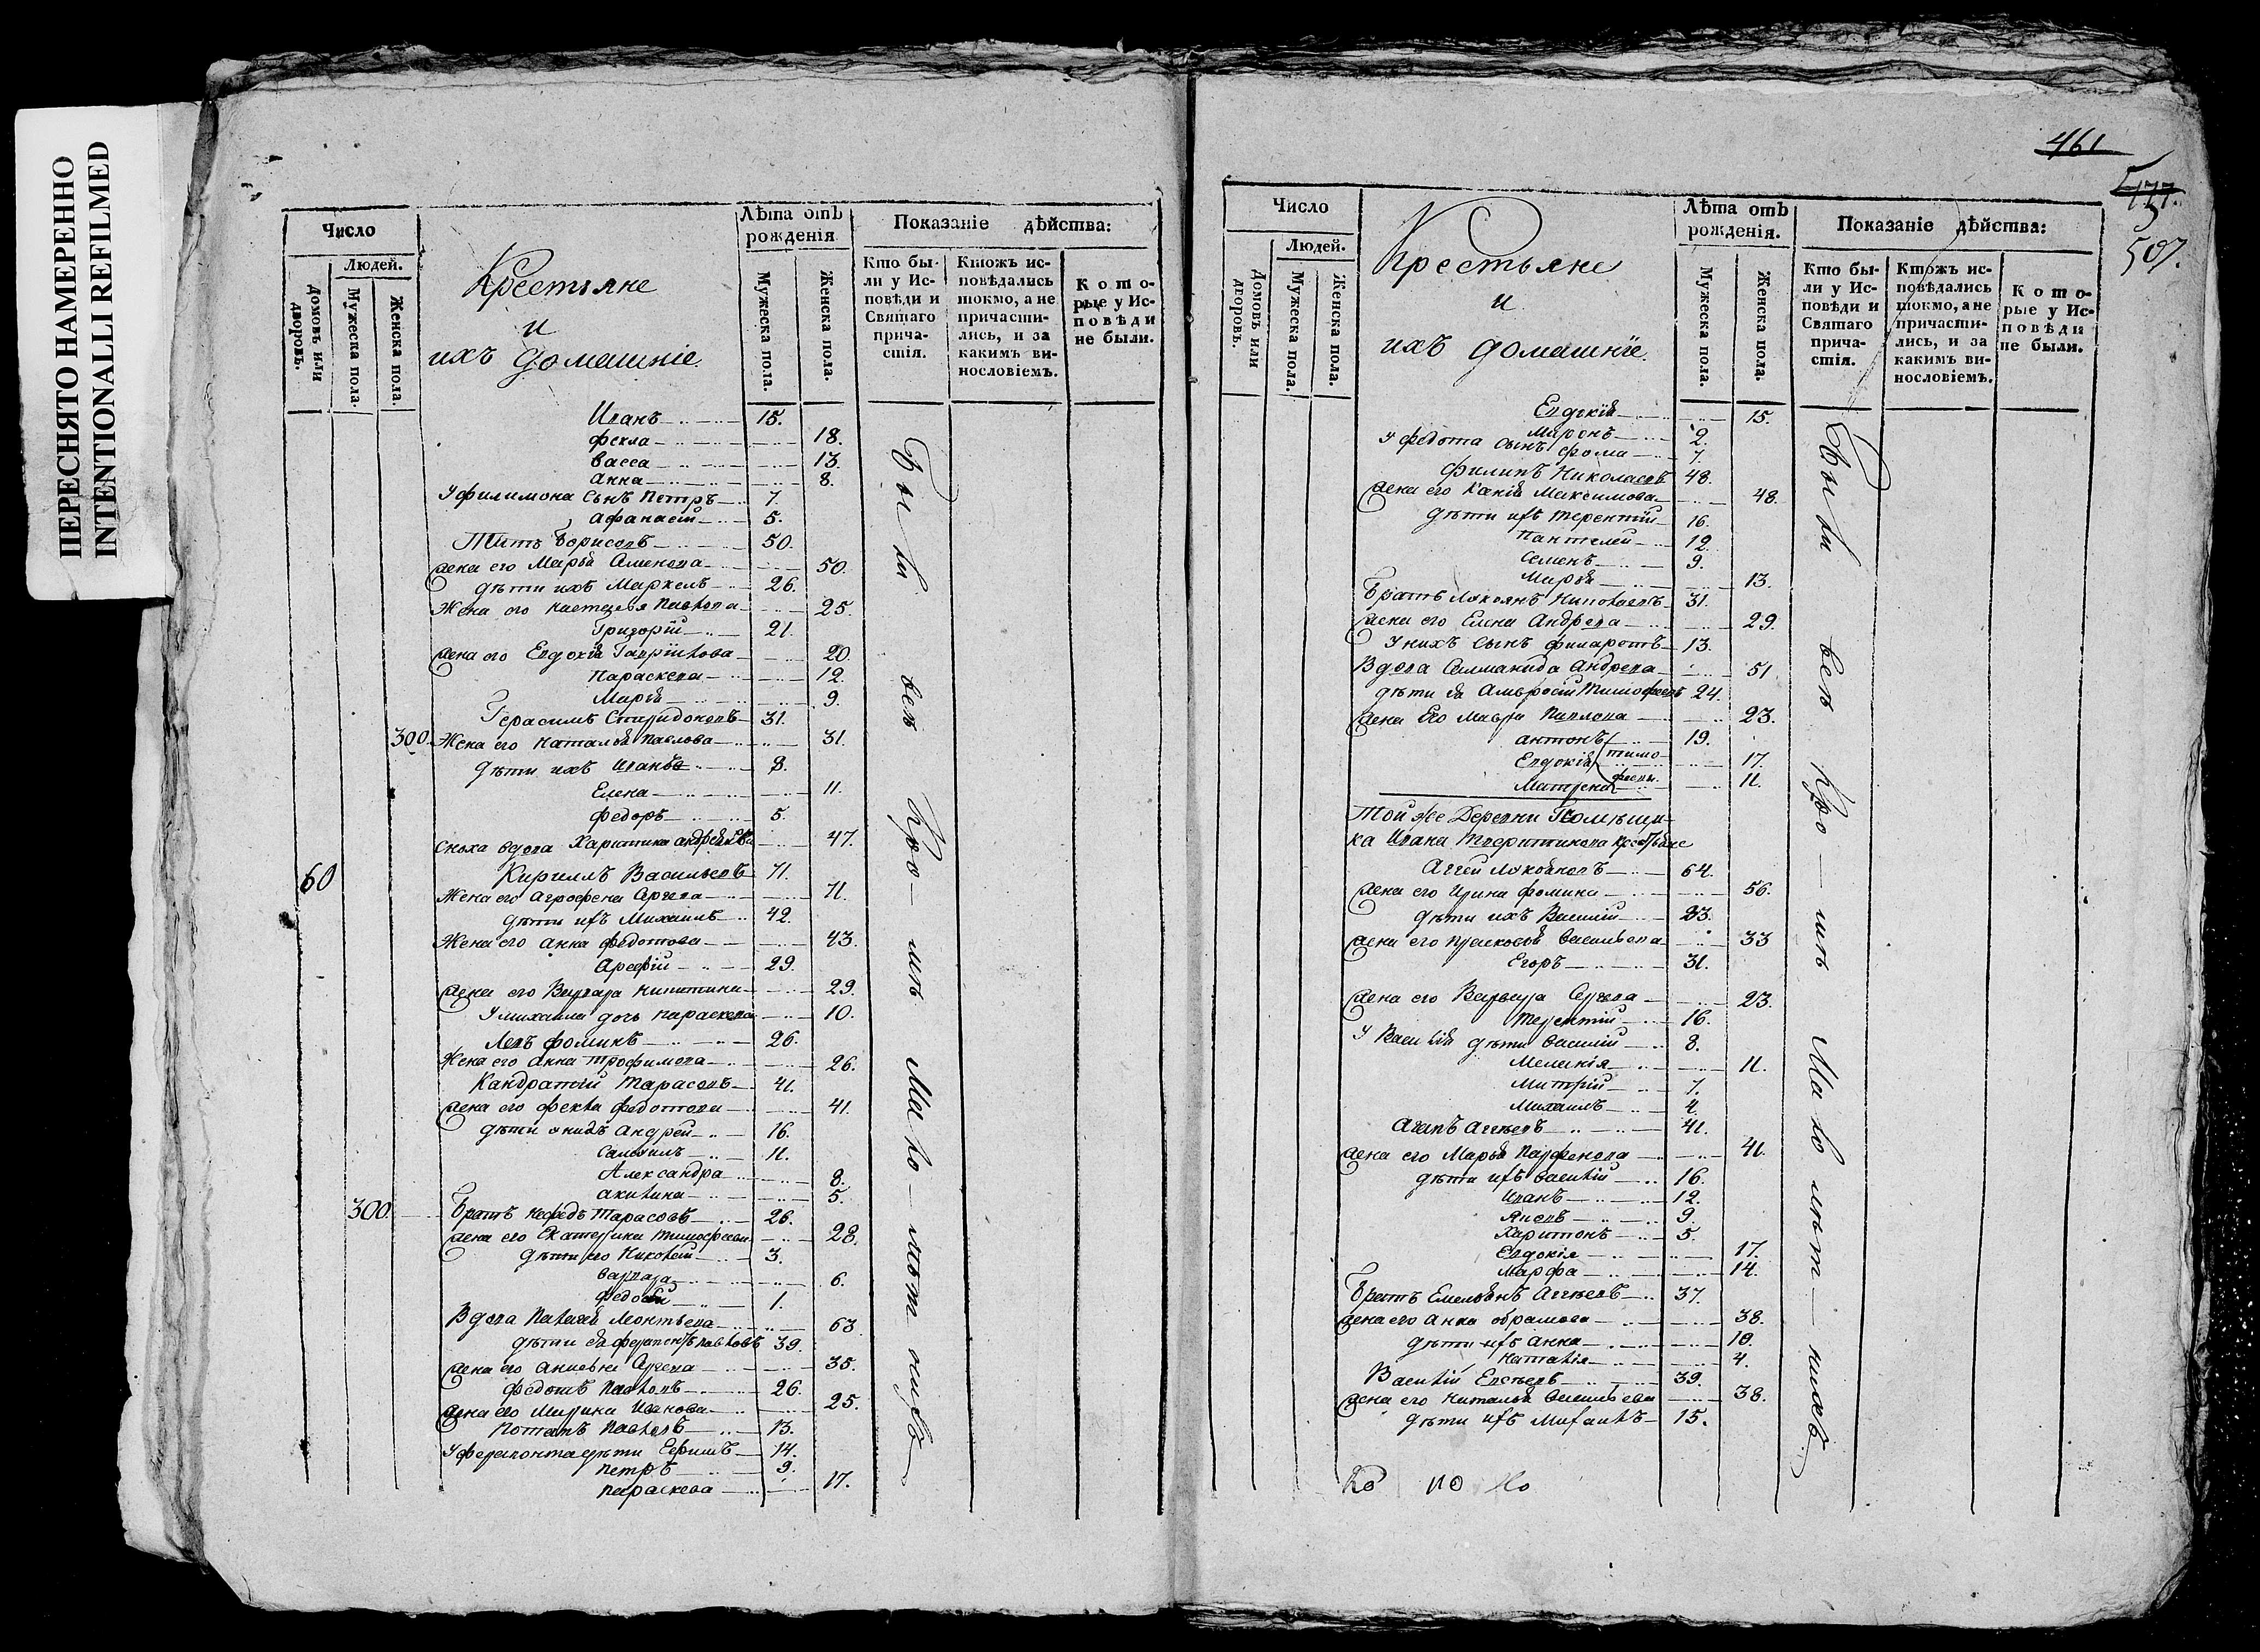 ПЕРЕСНЯТО НАМЕРЕННО
INTENTIONALLI REFILMED
Число
Людей.
Домовъ или дворовъ.
Мужеска пола.
Женска пола.
Крестьяне
и
ихъ домашніе
Лѣта отъ рожденія
Мужеска пола.
Женска пола.
Показаніе дѣйства:
Кто были у Исповѣди и Святаго причастія.
Ктожъ исповѣдались токмо, а не причастились, и за какимъ винословіемъ.
Которые у Исповѣди не были.
Иванъ 15.
Фекла 18.
Васса 13.
Анна 8.
У филимона сынъ Петръ 7.
Афанасій 5.
Титъ Борисовъ 50.
Жена его Марья Семенова 50.
дѣти ихъ Маркелъ 26.
Жена его Настасья Павлова 25.
Григорій 21.
Жена его Евдокія Гаврилова 20.
Параскева 12.
Марія 9.
Герасимъ Спиридоновъ 31.
300. Жена его Наталья Павлова 31.
дѣти ихъ Иванъ 8.
Елена 11.
Федоръ 5.
Сноха вдова Харитина Андреева 47.
60 Кириллъ Васильевъ 71.
Жена его Агрофена Сергева 71.
дѣти ихъ Михаилъ 42.
Жена его Анна Федотова 43.
Арефій 29.
Жена его Варвара Никитина 29.
У михаила дочь параскева 10.
Левъ Фоминъ 26.
Жена его Анна Трофимова 26.
Кандратій Тарасовъ 41.
Жена его Фекла Федотова 41.
дѣти у нихъ Андрей 16.
Самоилъ 11.
Александра 8.
Акилина 5.
300. Братъ Нефедъ Тарасовъ 26.
Жена его Екатерина Тимофеева 28.
дѣти его Николай 3.
Варвара 6.
Федосій 1.
Вдова Пелагея Леонтьева 63
дѣти ея Ферапонтъ Павловъ 39.
Жена его Анисья Сергева 35.
Федотъ Павловъ 26.
Жена его Марина Иванова 25.
Потапъ Павловъ 13.
У ферапонта дѣти Ефимъ 14.
Петръ 9.
Параскева 17.
Были всѣ
461
507.
Число
Людей.
Домовъ или дворовъ.
Мужеска пола.
Женска пола.
Крестьяне
и
ихъ домашніе.
Лѣта отъ рожденія.
Мужеска пола.
Женска пола.
Показаніе дѣйства:
Кто были у Исповѣди и Святаго причастія.
Ктожъ исповѣдались токмо, а не причастились, и за какимъ винословіемъ.
Которые у Исповѣди не были.
Евдокія 15.
Миронъ 2.
У федота сынъ Фома 7.
Филипъ Николаевъ 48.
Жена его Ксенія Максимова 48.
дѣти ихъ Терентій 16.
Пантелей 12.
Семенъ 9.
Марья 13.
Братъ Лукоянъ Николаевъ 31.
Жена его Елена Андрева 29.
У нихъ сынъ Филаретъ 13.
Вдова Соломанида Андрева 51
дѣти ея Амвросій Тимофеевъ 24.
Жена Его Мавра Павлова 23.
Антонъ 19.
Евдокія тимо- 17.
Матрена феевы. 11.
Той же Деревни Помѣщи-
ка Ивана крестьяне
Аггей 64.
Жена его Ирина Фомина 56.
дѣти ихъ Василій 33.
Жена его Прасковья Васильева 33
Егоръ 31.
Жена его Варвара Сергева 23.
Терентій 16.
У Василія дѣти Василій 8.
Меланія 11.
Митрій 7.
Михаилъ 4.
Агапъ Аггѣевъ 41.
Жена его Марья Парфенова 41.
дѣти ихъ Василій 16.
Иванъ 12.
9.
Харитонъ 5.
Евдокія 17.
Марфа 14.
Братъ Емельянъ Аггѣевъ 37.
Жена его Анна Обрамова 38.
дѣти ихъ Анна 10.
Наталія 4.
Василій Евсѣевъ 39.
Жена его Наталья Васильева 38.
дѣти ихъ Михаилъ 15.
Были всѣ